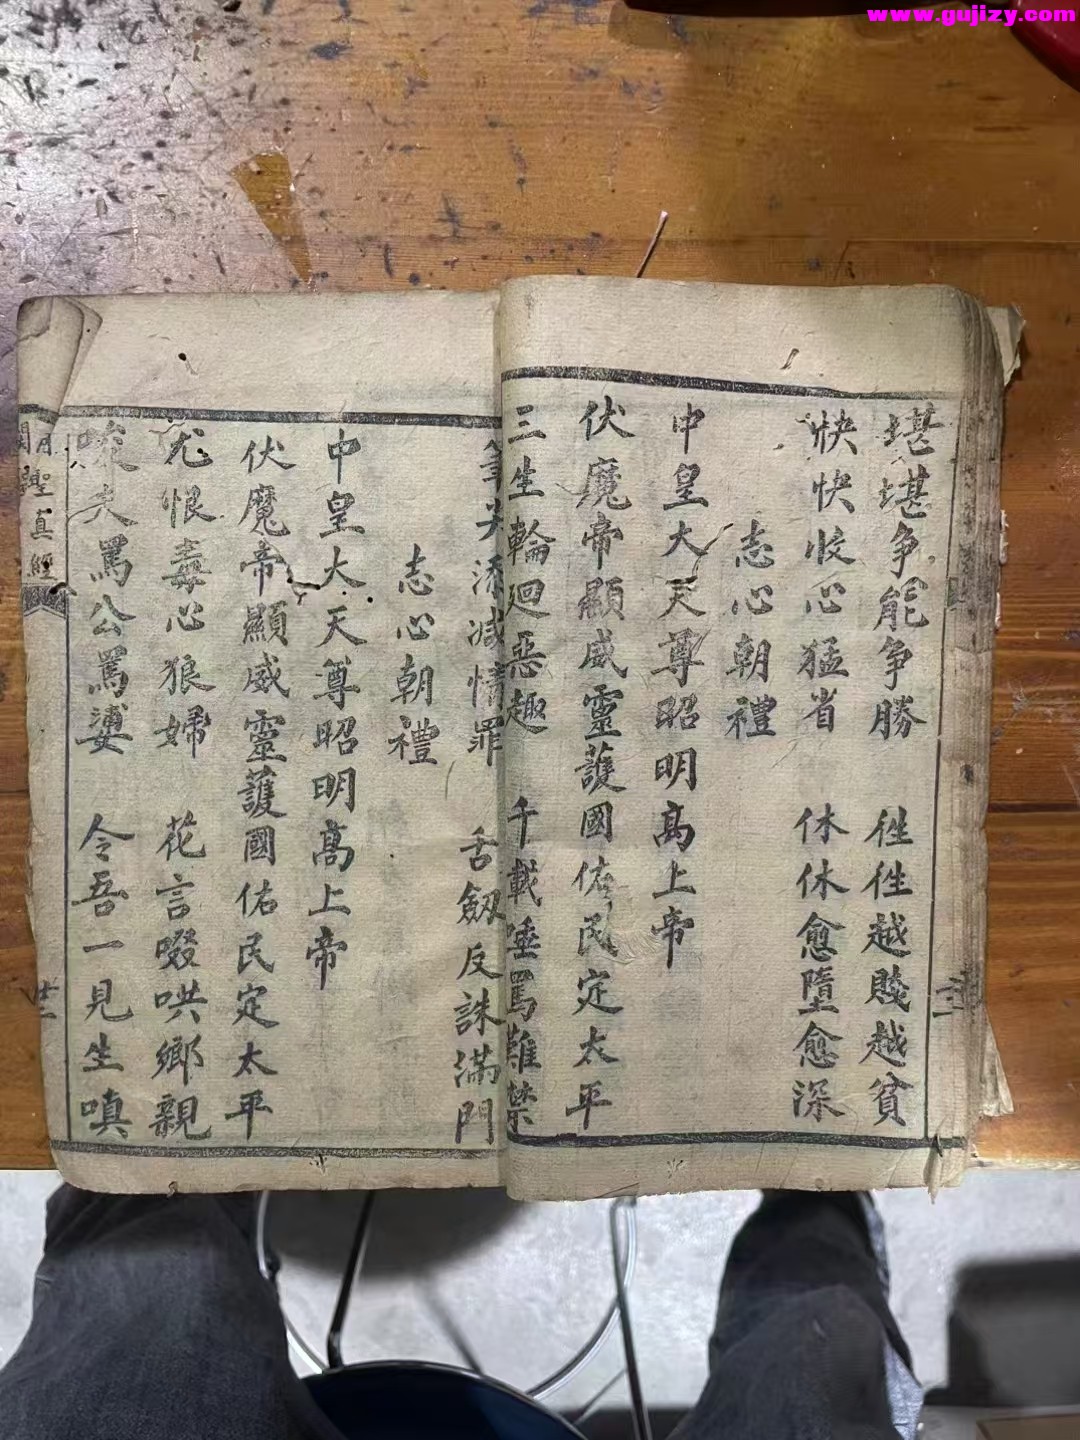 www.gujizy.com
堪堪争能争勝　徃徃越賤越貧
快快收心猛省　休休愈墮愈深
志心朝禮
中皇大天尊昭明高上帝
伏魔帝顯威靈護國佑民定太平
三生輪迴惡趣　千載唾罵難禁
尖添减情罪　舌劔反誅滿門
志心朝禮
中皇大天尊昭明高上帝
伏魔帝顯威靈護國佑民定太平
尤恨毒心狼婦　花言啜哄鄉親
夫罵公罵婆　令吾一見生嗔
聖真經